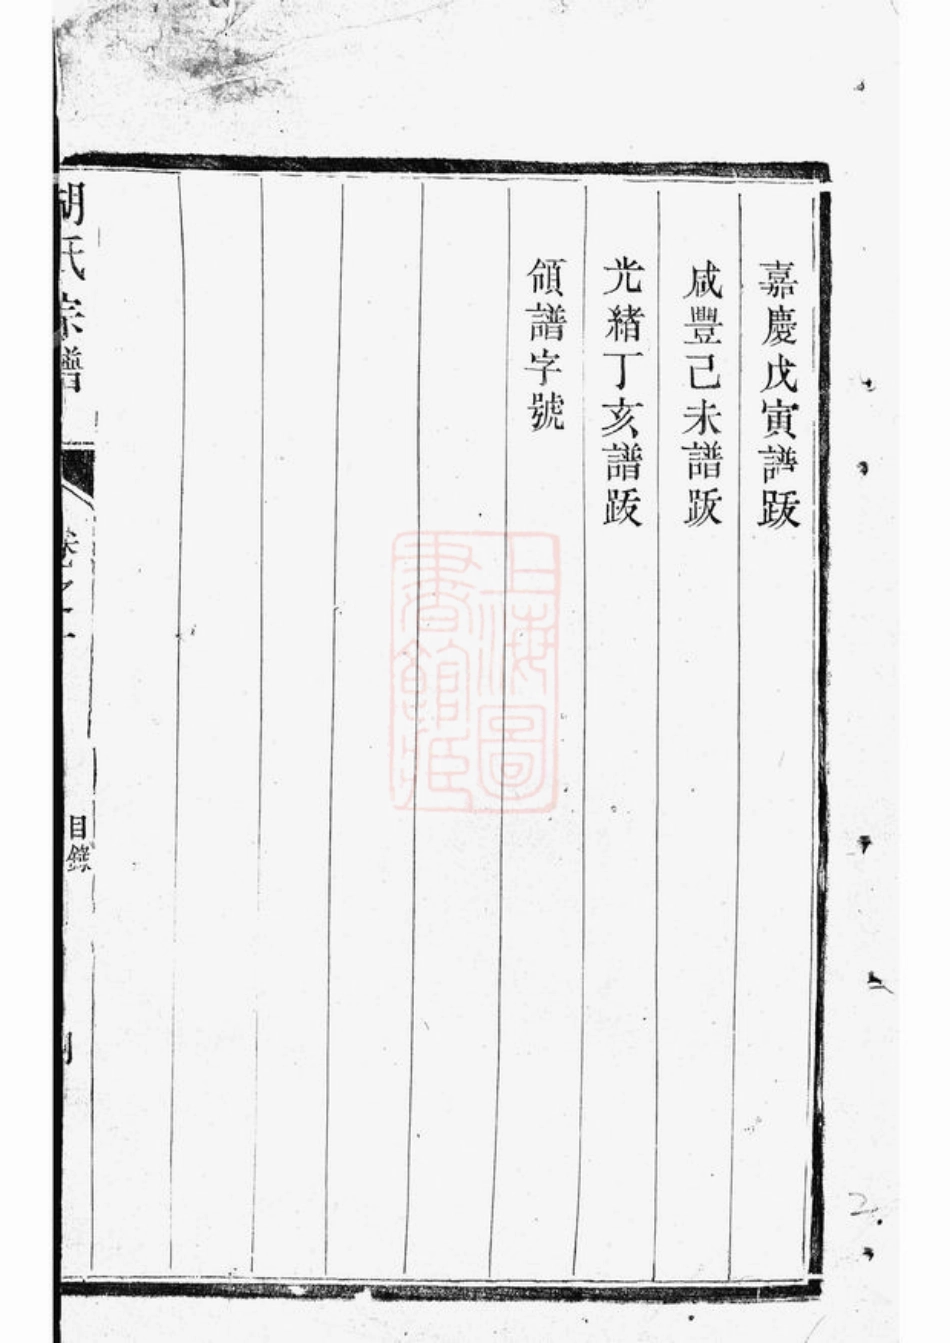 嘉慶戊寅譜跋
咸豐己未譜跋
光緒丁亥譜跋
領譜字號
胡氏宗譜
卷之
目錄
上海圖
書館藏